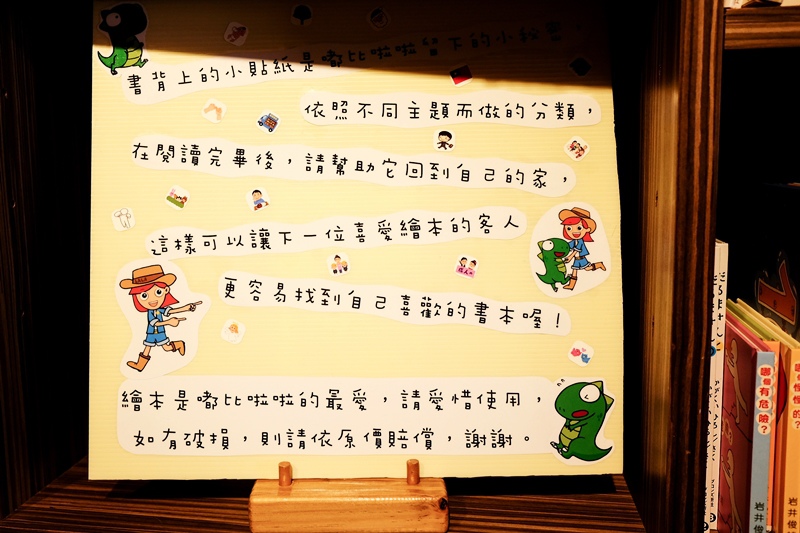 書背上的小貼紙是嘟比啦啦留下的小秘密，
依照不同主題而做的分類，
在閱讀完畢後，請幫助它回到自己的家，
這樣可以讓下一位喜愛繪本的客人
更容易找到自己喜歡的書本喔！
繪本是嘟比啦啦的最愛，請愛惜使用，
如有破損，則請依原價賠償，謝謝。
哪裡有危險？
岩井俊
岩井俊